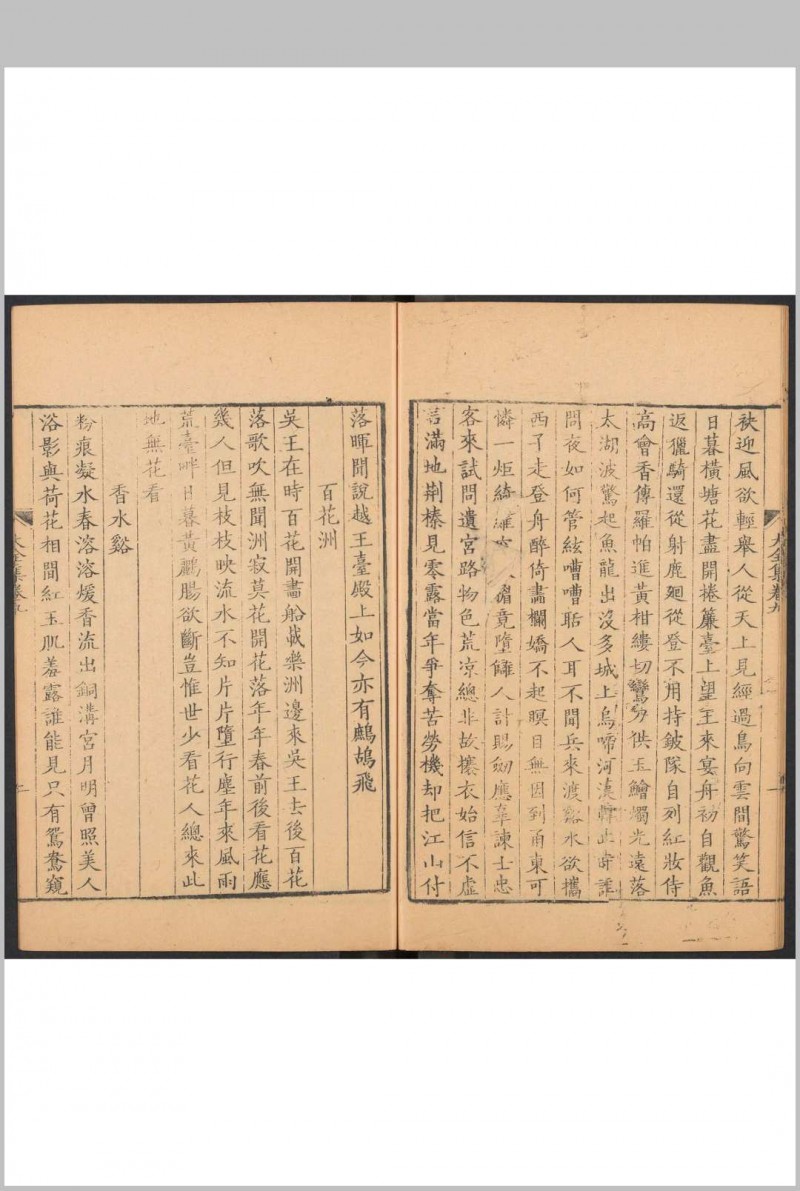 袂迎風欲輕舉人從天上見經過鳥向雲間驚笑語
日暮橫塘花盡開捲簾臺上望王來宴舟初自觀魚
返獵騎還從射鹿廻從登不用持鈹隊自列紅妝侍
高會香傳羅帕進黃柑縷切鸞刀供玉鱠燭光遠落
太湖波驚起魚龍出沒多城上烏啼河漢
問夜如何管絃嘈嘈聒人耳不聞兵來渡谿水欲攜
西子走登舟醉倚畵欄嬌不起瞑目無因到甬東可
憐一炬綺竟墮讎人計賜劒應辜諫士忠
客來試問遺宮路物色荒凉總非故攘衣始信不虛
言滿地荆榛見零露當年爭奪苦勞機却把江山付
大全集卷九
落暉聞說越王臺殿上如今亦有鷓鴣飛
百花洲
吳王在時百花開畵船載樂洲邊來吳王去後百花
落歌吹無聞洲寂莫花開花落年年春前後看花應
幾人但見枝枝映流水不知片片墮行塵年來風雨
荒臺畔日暮黃鸝腸欲斷豈惟世少看花人總來此
地無花看
香水谿
粉痕凝水春溶溶煖香流出銅溝宮月明曾照美人
浴影與荷花相間紅玉肌羞露誰能見只有鴛鴦窺
大全集卷九